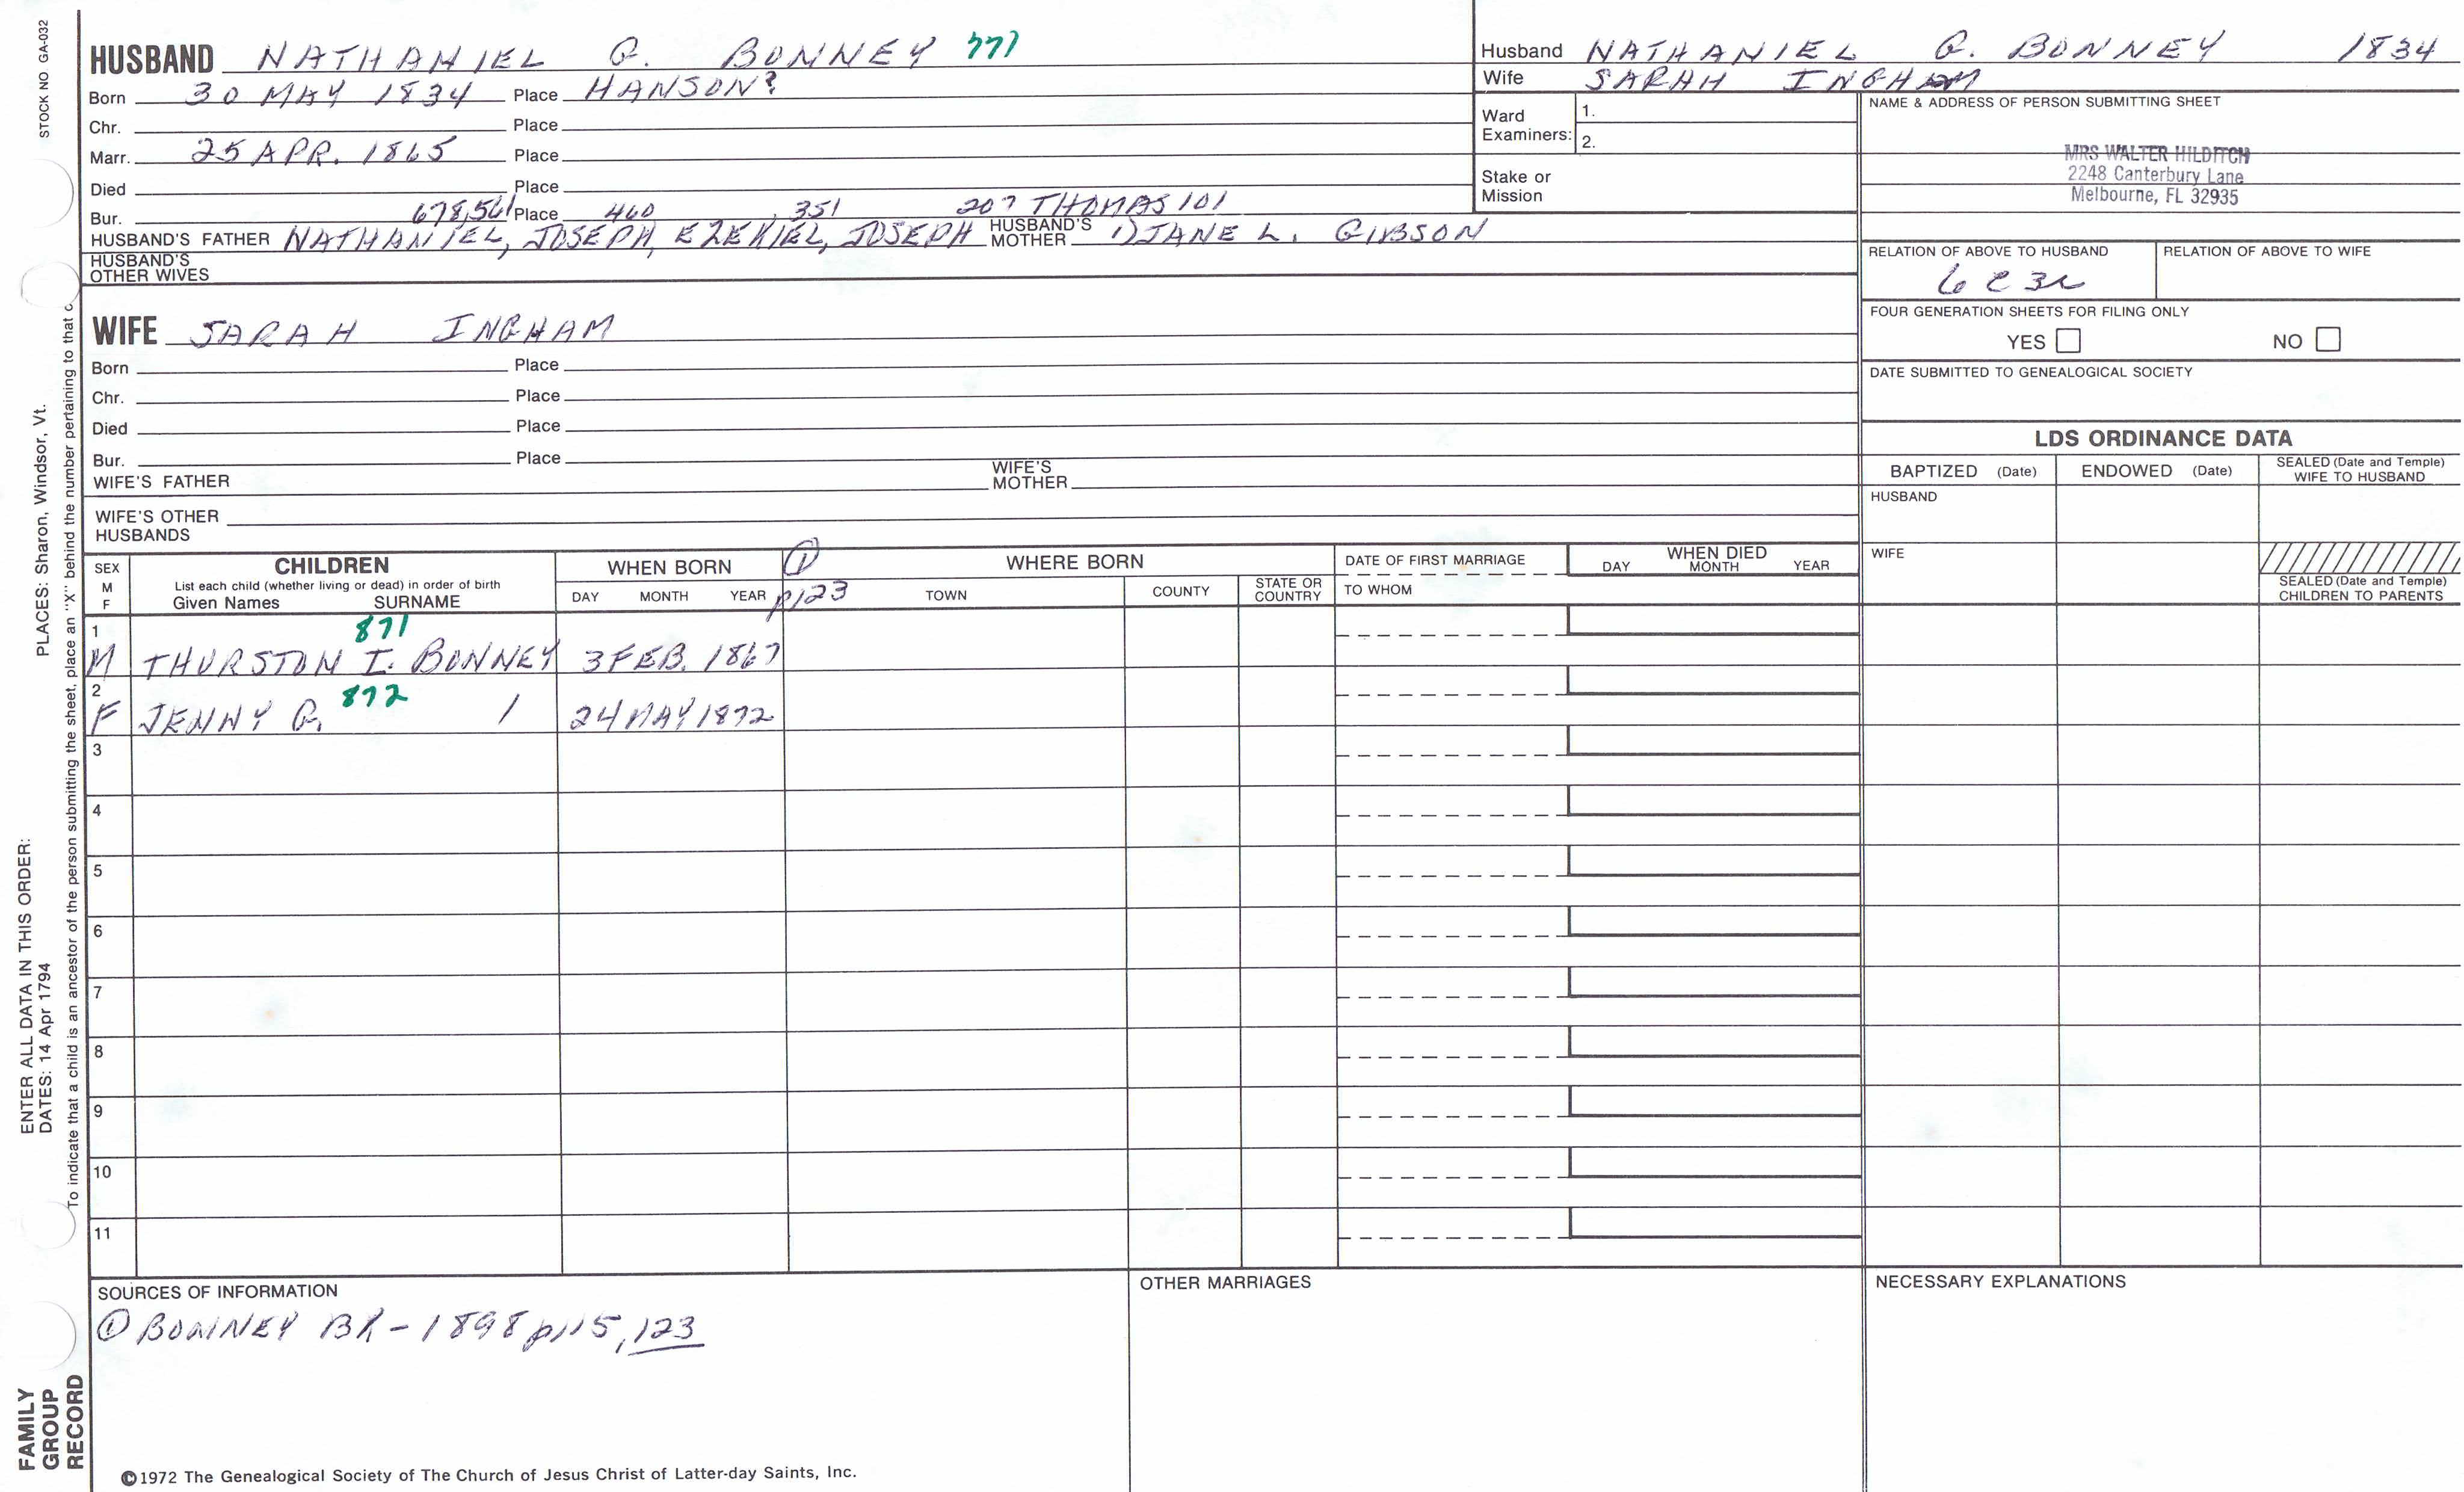 STOCK NO GA-032
HUSBAND NATHANIEL G. BONNEY 771
Born 30 MAY 1834 Place HANSON?
Chr. Place
Marr. 25 APR. 1865 Place
Died Place
Bur. 678,561 Place 460 351 207 THOMAS 101
HUSBAND'S FATHER NATHANIEL, JOSEPH, EZEKIEL, JOSEPH HUSBAND'S MOTHER 1) JANE L. GIBSON
HUSBAND'S OTHER WIVES
WIFE SARAH INGHAM
Born Place
Chr. Place
Died Place
Bur. Place
WIFE'S FATHER WIFE'S MOTHER
WIFE'S OTHER HUSBANDS
Husband NATHANIEL G. BONNEY 1834
Wife SARAH INGHAM
Ward Examiners: 1.
2.
Stake or Mission
NAME & ADDRESS OF PERSON SUBMITTING SHEET
MRS WALTER HILDITCH
2248 Canterbury Lane
Melbourne, FL 32935
RELATION OF ABOVE TO HUSBAND RELATION OF ABOVE TO WIFE
6C3R
FOUR GENERATION SHEETS FOR FILING ONLY
YES NO
DATE SUBMITTED TO GENEALOGICAL SOCIETY
LDS ORDINANCE DATA
BAPTIZED (Date) ENDOWED (Date) SEALED (Date and Temple) WIFE TO HUSBAND
HUSBAND
WIFE
SEALED (Date and Temple) CHILDREN TO PARENTS
SEX M F
CHILDREN
List each child (whether living or dead) in order of birth
Given Names SURNAME
WHEN BORN
DAY MONTH YEAR
① p123
WHERE BORN
TOWN COUNTY STATE OR COUNTRY
DATE OF FIRST MARRIAGE
TO WHOM
WHEN DIED
DAY MONTH YEAR
1 871
M THURSTON I. BONNEY 3 FEB. 1867
2 872
F JENNY G. / 24 MAY 1872
3
4
5
6
7
8
9
10
11
SOURCES OF INFORMATION
① BONNEY BK - 1898 p115, 123
OTHER MARRIAGES
NECESSARY EXPLANATIONS
©1972 The Genealogical Society of The Church of Jesus Christ of Latter-day Saints, Inc.
FAMILY GROUP RECORD
ENTER ALL DATA IN THIS ORDER:
DATES: 14 Apr 1794 PLACES: Sharon, Windsor, Vt.
To indicate that a child is an ancestor of the person submitting the sheet, place an "X" behind the number pertaining to that c